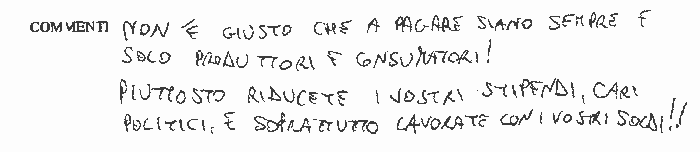 COMMENTI NON È GIUSTO CHE A PAGARE SIANO SEMPRE E
SOLO PRODUTTORI E CONSUMATORI!
PIUTTOSTO RIDUCETE I VOSTRI STIPENDI, CARI
POLITICI, E SOPRATTUTTO LAVORATE CON I VOSTRI SOLDI!!